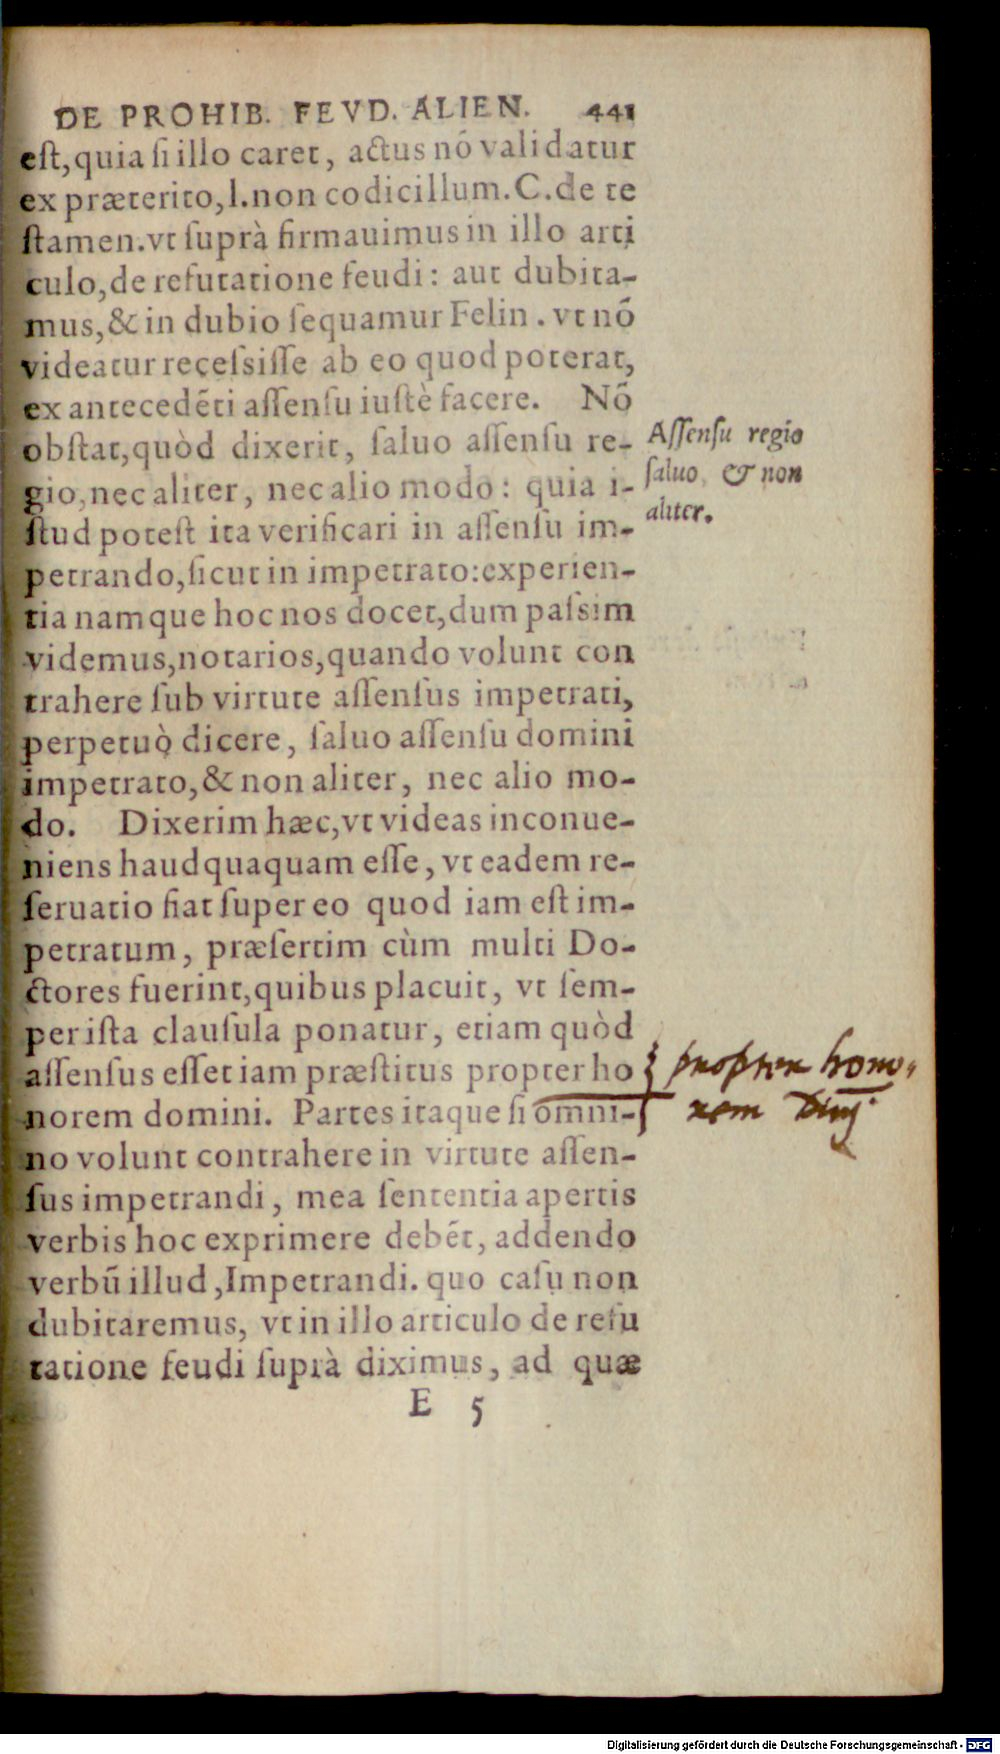 DE PROHIB. FEVD. ALIEN. 441
eſt, quia ſi illo caret, actus nõ validatur
ex præterito, l. non codicillum. C. de te
ſtamen. vt ſuprà firmauimus in illo arti
culo, de refutatione feudi: aut dubita-
mus, & in dubio ſequamur Felin. vt nõ
videatur receſsiſſe ab eo quod poterat,
ex antecedẽti aſſenſu iuſtè facere. Nõ
obſtat, quòd dixerit, ſaluo aſſenſu re-
gio, nec aliter, nec alio modo: quia i-
ſtud poteſt ita verificari in aſſenſu im-
petrando, ſicut in impetrato: experien-
tia namque hoc nos docet, dum paſsim
videmus, notarios, quando volunt con
trahere ſub virtute aſſenſus impetrati,
perpetuò dicere, ſaluo aſſenſu domini
impetrato, & non aliter, nec alio mo-
do. Dixerim hæc, vt videas inconue-
niens haudquaquam eſſe, vt eadem re-
ſeruatio fiat ſuper eo quod iam eſt im-
petratum, præſertim cùm multi Do-
ctores fuerint, quibus placuit, vt ſem-
per iſta clauſula ponatur, etiam quòd
aſſenſus eſſet iam præſtitus propter ho
norem domini. Partes itaque ſi omni-
no volunt contrahere in virtute aſſen-
ſus impetrandi, mea ſententia apertis
verbis hoc exprimere debẽt, addendo
verbũ illud, Impetrandi. quo caſu non
dubitaremus, vt in illo articulo de refu
tatione feudi ſuprà diximus, ad quæ
E 5
Aſſenſu regio
ſaluo, & non
aliter.
propter hono-
rem Dnj
Digitalisierung gefördert durch die Deutsche Forschungsgemeinschaft - DFG